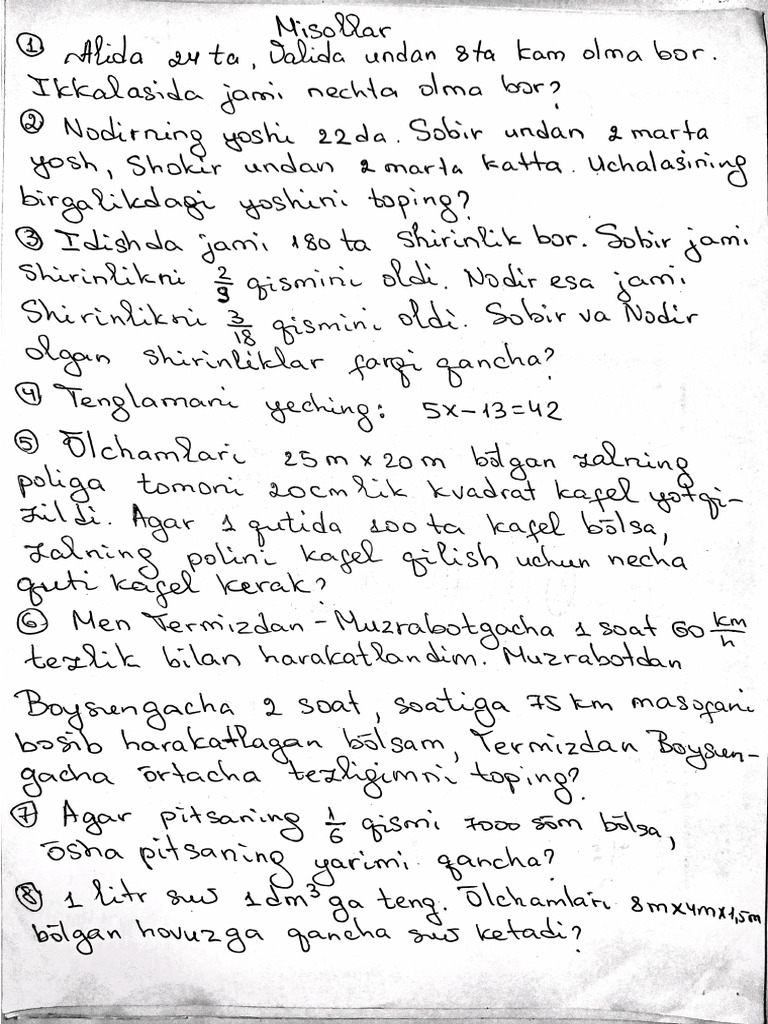 Misollar
① Alida 24 ta, Valida undan 8ta kam olma bor.
Ikkalasida jami nechta olma bor?
② Nodirning yoshi 22 da. Sobir undan 2 marta
yosh, Shokir undan 2 marta katta. Uchalasining
birgalikdagi yoshini toping?
③ Idishda jami 180 ta shirinlik bor. Sobir jami
shirinlikni 2/9 qismini oldi. Nodir esa jami
shirinlikni 3/18 qismini oldi. Sobir va Nodir
olgan shirinliklar farqi qancha?
④ Tenglamani yeching: 5x-13=42
⑤ Ōlchamlari 25m x 20m bōlgan zalning
poliga tomoni 20cm lik kvadrat kafel yotqi-
zildi. Agar 1 qutida 100 ta kafel bōlsa,
zalning polini kafel qilish uchun necha
quti kafel kerak?
⑥ Men Termizdan - Muzrabotgacha 1 soat 60 km/h
tezlik bilan harakatlandim. Muzrabotdan
Boysungacha 2 soat, soatiga 75 km masofani
bosib harakatlagan bōlsam, Termizdan Boysun-
gacha ōrtacha tezligimni toping?
⑦ Agar pitsaning 1/6 qismi 7000 sōm bōlsa,
ōsha pitsaning yarimi qancha?
⑧ 1 litr suv 1dm³ ga teng. Ōlchamlari 8mx4mx1,5m
bōlgan hovuzga qancha suv ketadi?